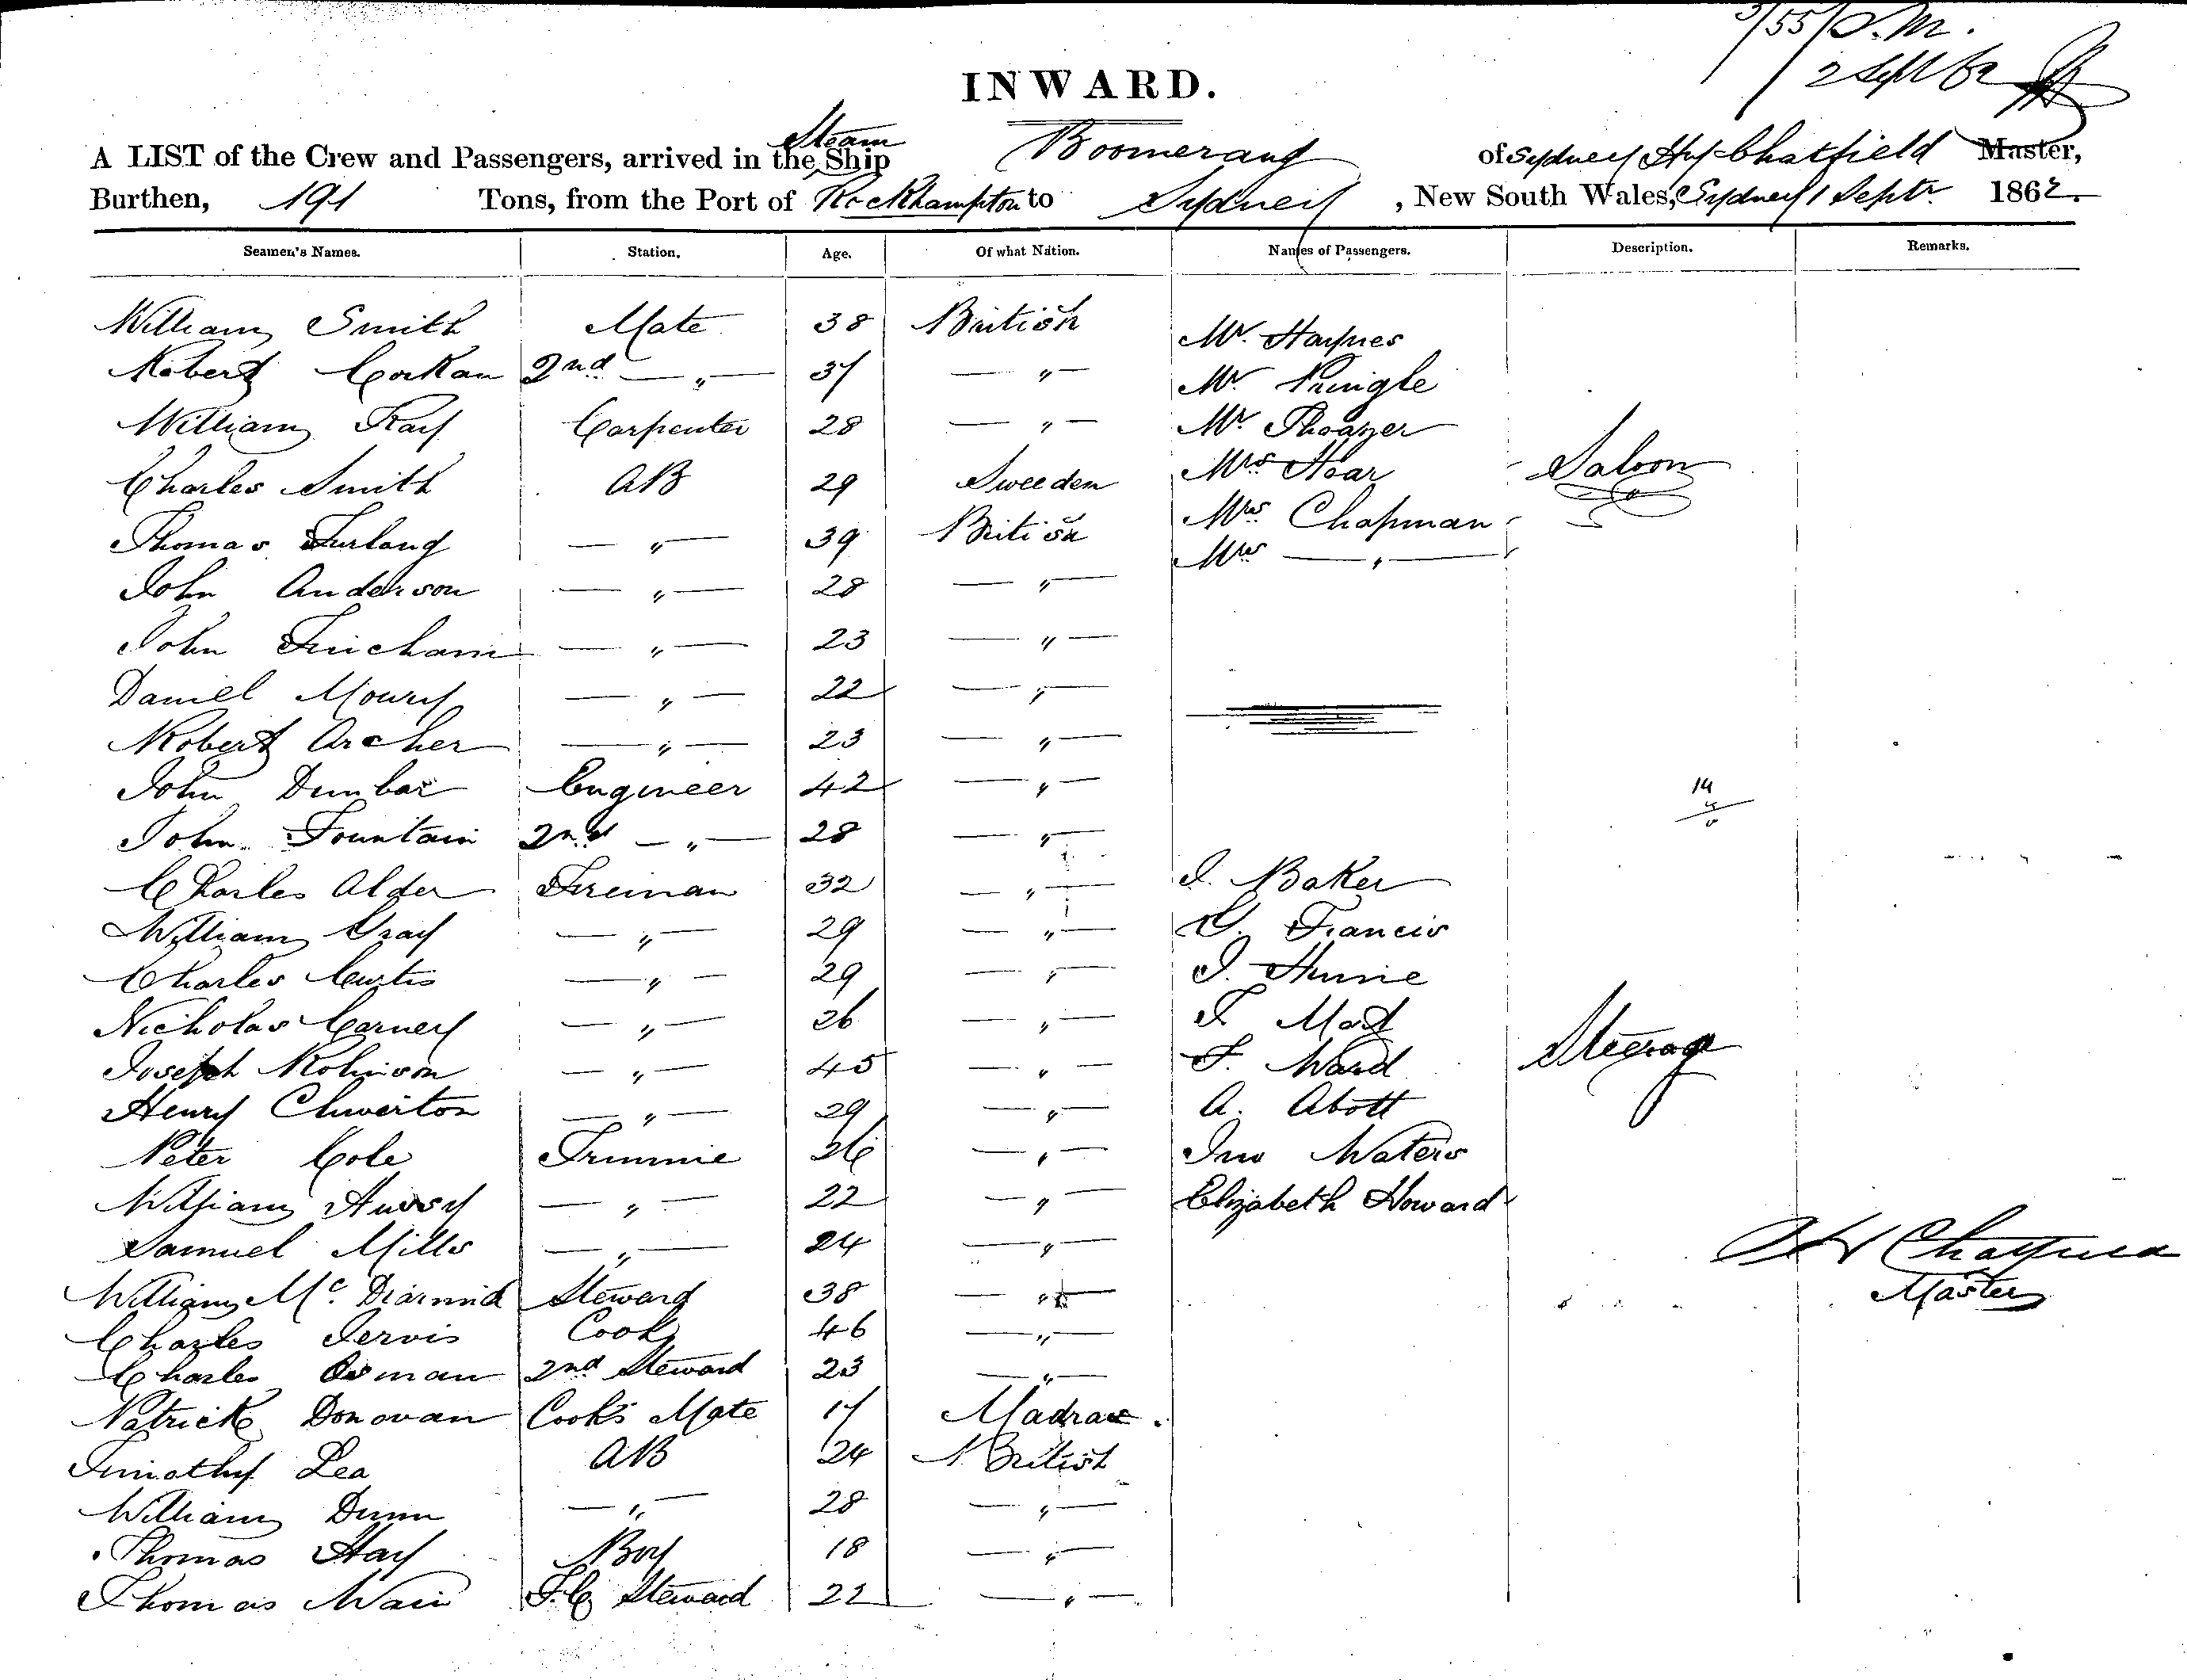 3/55/P.M.
2 Sept 62
INWARD.
A LIST of the Crew and Passengers, arrived in the Steam Ship Boomerang of Sydney Hy Chatfield Master,
Burthen, 191 Tons, from the Port of Rockhampton to Sydney, New South Wales, Sydney 1 Septr 1862.
Seamen's Names. Station. Age. Of what Nation. Names of Passengers. Description. Remarks.
William Smith Mate 38 British Mr. Haynes
Robert Corkan 2nd — " — 37 — " — Mr. Pringle
William Kay Carpenter 28 — " — Mr.
Charles Smith AB 29 Sweeden Mrs Hoar Saloon
Thomas Furlong — " — 39 British Mrs Chapman
John Anderson — " — 28 — " — Mrs — " —
John — " — 23 — " —
Daniel Mowry — " — 22 — " —
Robert Archer — " — 23 — " —
John Dunbar Engineer 42 — " — 14
John Fountain 2nd — " — 28 — " —
Charles Alder Fireman 32 — " — J. Baker
William Gray — " — 29 — " — G. Francis
Charles Curtis — " — 29 — " — J. Hume
Nicholas Carney — " — 26 — " —
Joseph Robinson — " — 45 — " — F. Ward Steerage
Henry Chiverton — " — 29 — " — A. Abott
Peter Cole Trimmie 26 — " — Jno Waters
William Hussy — " — 22 — " — Elizabeth Howard
Samuel Mills — " — 24 — " — Chatfield
William Mc. Diarmid Steward 38 — " — Master
Charles Jervis Cook 46 — " —
Charles Osman 2nd Steward 23 — " —
Patrick Donovan Cook's Mate 17 Madras
Timothy Lea AB 24 British
William Dunn — " — 28 — " —
Thomas Hay Boy 18 — " —
Thomas Wain F.C Steward 22 — " —